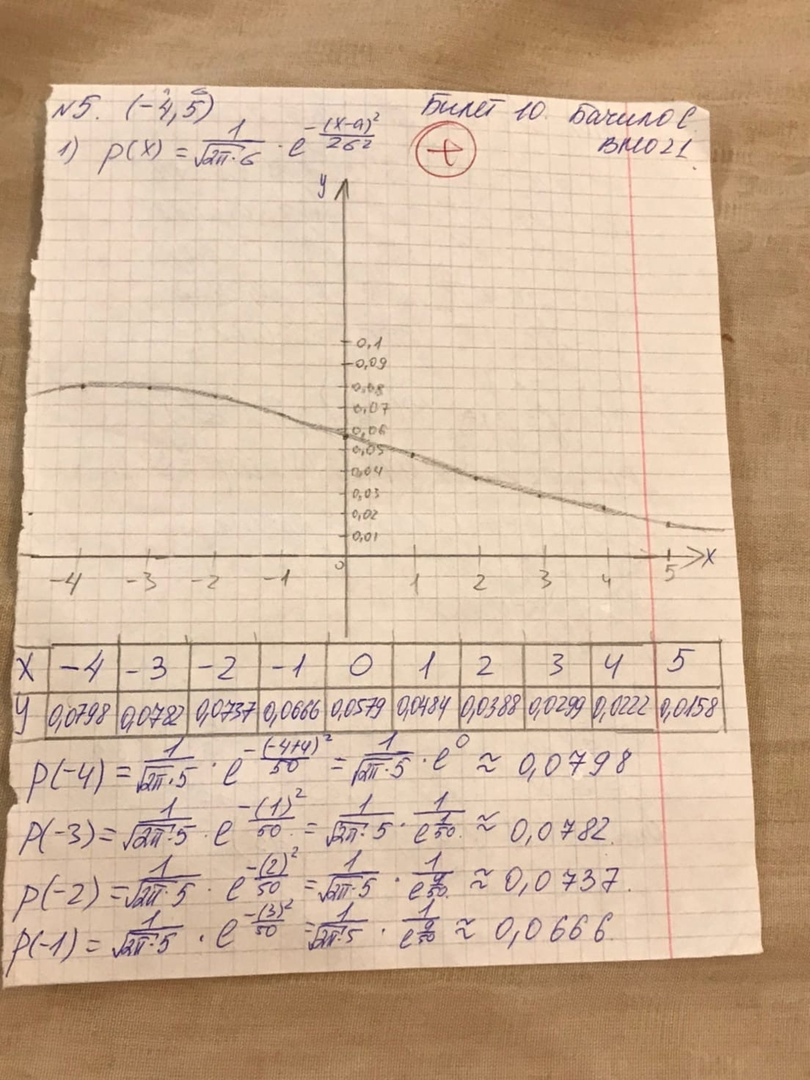 №5. (-4,5) Билет 10. Бачило С.
1) p(x) = 1/(√2π·б) · e^(-(x-a)²/2б²) + ВМО21
y
0,1
0,09
0,08
0,07
0,06
0,05
0,04
0,03
0,02
0,01
-4 -3 -2 -1 0 1 2 3 4 5 x
x -4 -3 -2 -1 0 1 2 3 4 5
y 0,0798 0,0782 0,0737 0,0666 0,0579 0,0484 0,0388 0,0299 0,0222 0,0158
p(-4) = 1/(√2π·5) · e^(-(-4+4)²/50) = 1/(√2π·5) · e^0 ≈ 0,0798
p(-3) = 1/(√2π·5) · e^(-(1)²/50) = 1/(√2π·5) · 1/e^(1/50) ≈ 0,0782.
p(-2) = 1/(√2π·5) · e^(-(2)²/50) = 1/(√2π·5) · 1/e^(4/50) ≈ 0,0737.
p(-1) = 1/(√2π·5) · e^(-(3)²/50) = 1/(√2π·5) · 1/e^(9/50) ≈ 0,0666.